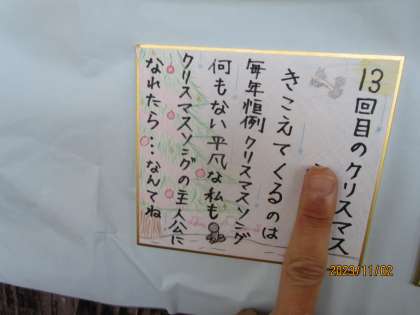 13回目のクリスマス
きこえてくるのは
毎年恒例クリスマスソング
何もない平凡な私も
クリスマスソングの主人公に
なれたら…なんてね
2023/11/02